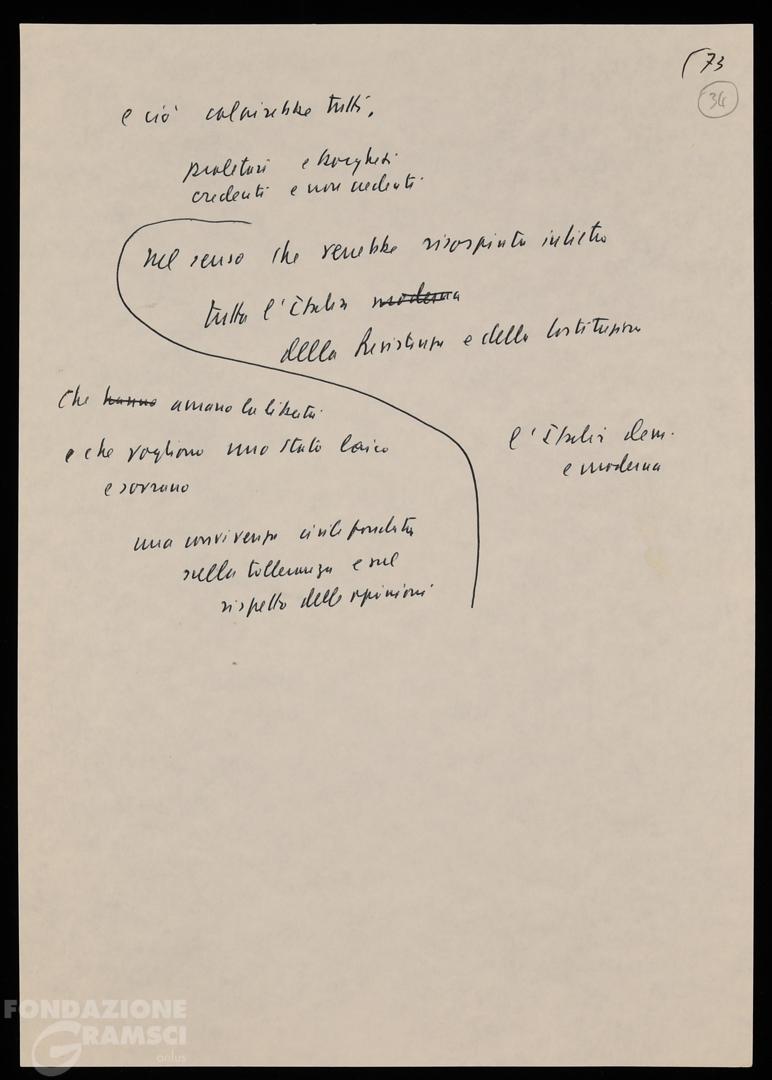 73
34
e ciò colpirebbe tutti,
proletari e borghesi
credenti e non credenti
nel senso che verrebbe risospinta indietro
tutta l'Italia moderna
della Resistenza e della Costituzione
che hanno amano la libertà
e che vogliono uno Stato laico
e sovrano
l'Italia dem.
e moderna
una convivenza civile fondata
sulla tolleranza e sul
rispetto delle opinioni
FONDAZIONE
GRAMSCI
onlus